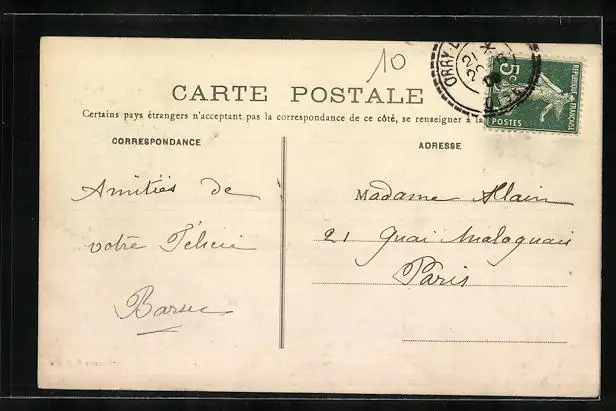 10
ORRY-L
21
20
OISE
5c
REPUBLIQUE FRANÇAISE
POSTES
CARTE POSTALE
Certains pays étrangers n'acceptant pas la correspondance de ce côté, se renseigner à la
CORRESPONDANCE
ADRESSE
Amitiés de
votre Félicie
Barsec
Madame Allain
21 Quai Malaquais
Paris